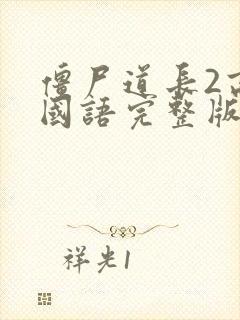 僵尸道长2高
國語完整版
祥光1